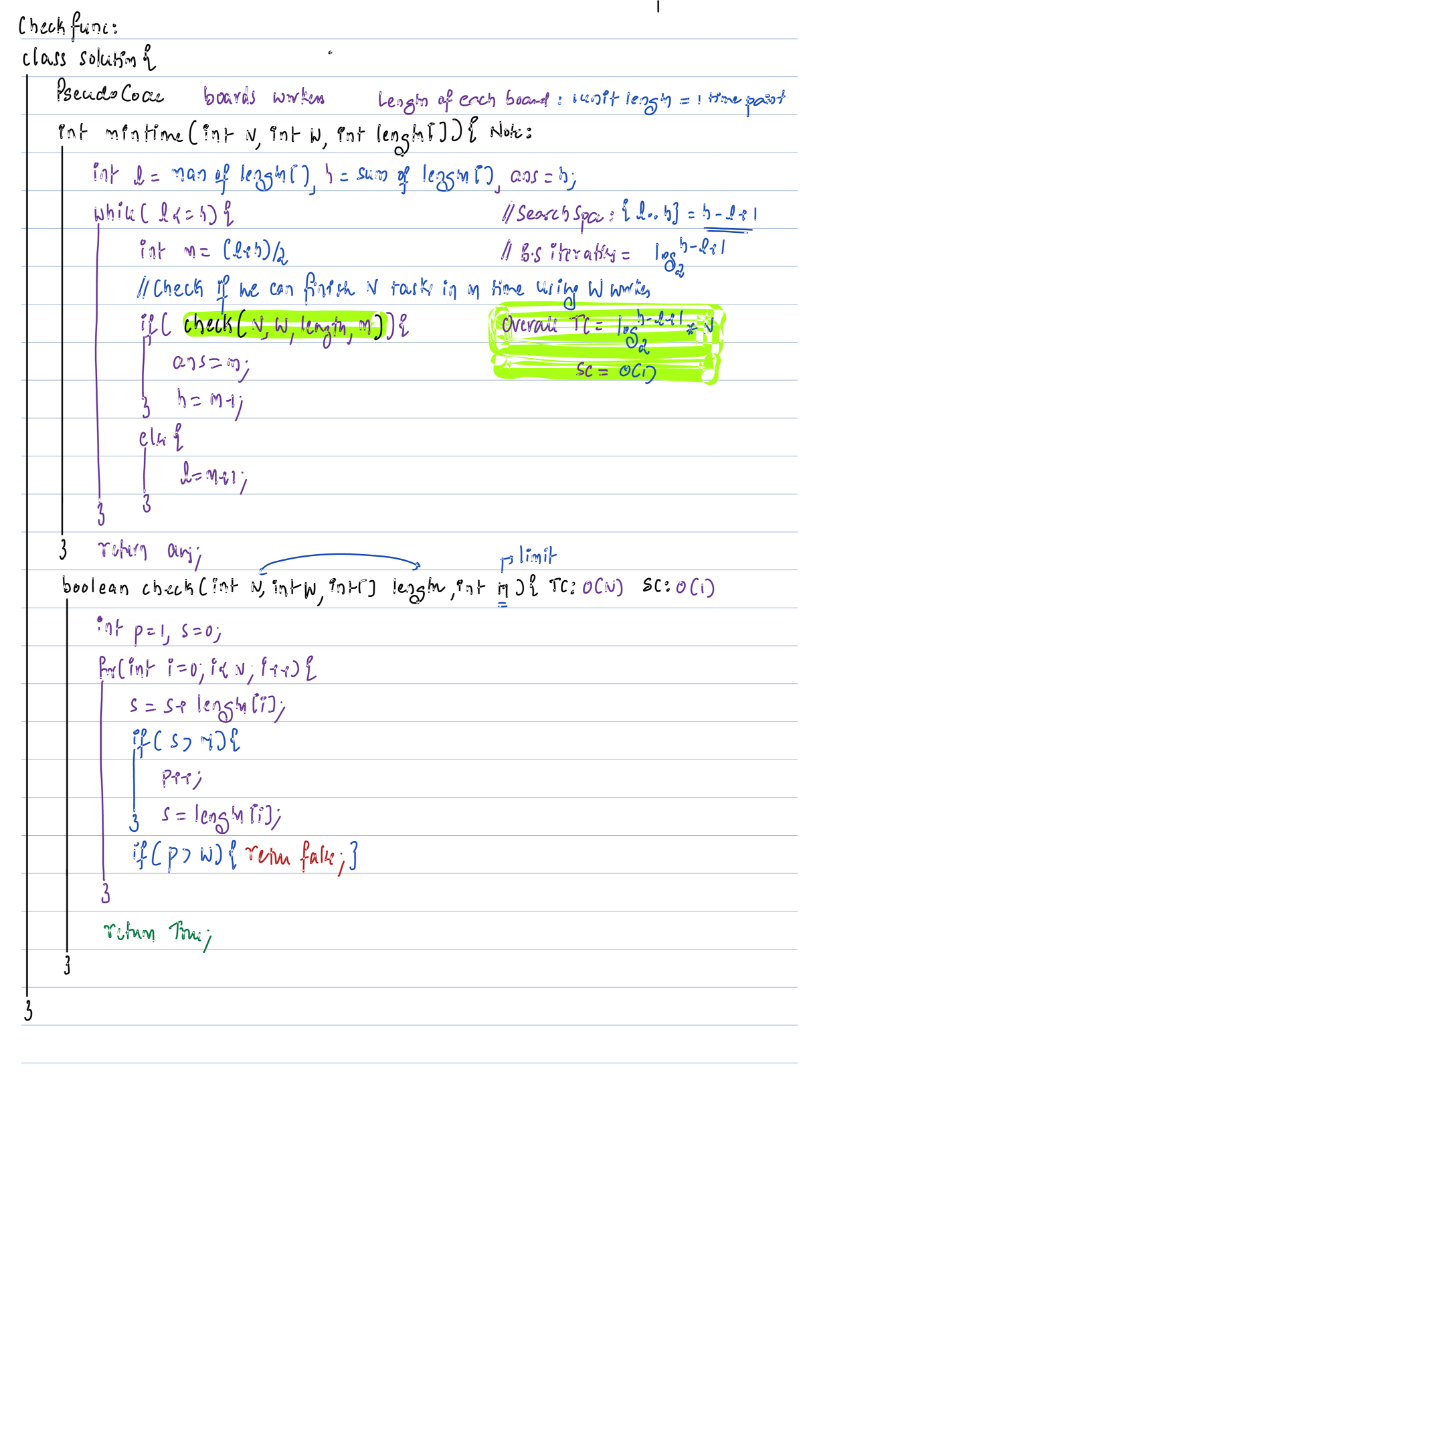 Check func:
class solution{
PseudoCode boards workers Length of each board: 1 unit length = 1 time point
int mintime(int N, int W, int length[]){ Note:
int l = max of length[], h = sum of length[], ans = h;
while( l <= h){ //Search Spa: {l..h] = h-l+1
int m = (l+h)/2 // B.S iterations = log2 h-l+1
//Check if we can finish N tasks in m time using W workers
if( check(N, W, length, m)){ Overall TC = log2 h-l+1 * N
ans = m; SC = O(1)
} h = m-1;
else{
l = m+1;
}
}
} return ans;
→ limit
boolean check(int N, int W, int[] length, int m){ TC: O(N) SC: O(1)
int p=1, s=0;
for(int i=0; i<N; i++){
s = s+ length[i];
if( s> m){
p++;
} s = length[i];
if( p> W){ return false; }
}
return True;
}
}